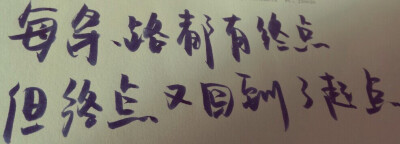 每条路都有终点
但终点又回到了起点